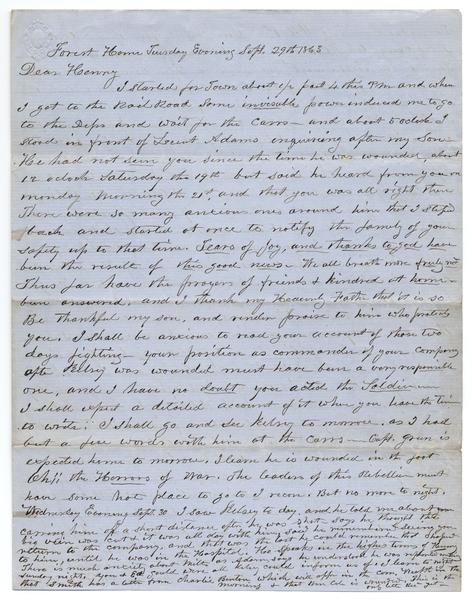 Forest Home Tuesday Evening Sept. 29th 1863
Dear Henry
I started for Town about ½ past 4 this P.M. and when
I got to the Rail Road some invisible power induced me to go
to the Depo and wait for the Carrs — and about 5 oclock I
stood in front of Locust Adams enquiring after my Son
He had not seen you since the time he was wounded, about
12 oclock Saturday the 19th but said he heard from you on
monday Morning the 21st and that you was all right then
There were so many anxious ones around him that I steped
back and started at once to notify the family of your
safety up to that time. Tears of joy, and thanks to god have
been the result of this good news. We all breath more freely now
Thus far have the prayers of friends & kindred at home
been answered, and I thank my Heavenly Father that it is so
Be thankful my son, and render praise to him who protects
you. I shall be anxious to read your account of those two
days fighting — your position as commander of your company
after Kelsey was wounded must have been a very responsible
one, and I have no doubt you acted the Soldier
I shall expect a detailed account of it when you have the time
to write. I shall go and see Kelsey to morrow, as I had
but a few words with him at the Carrs — Capt. Green is
expected home to morrow. I learn he is wounded in the foot
Oh!! the Horrors of War. The leaders of this Rebellion must
have some Hot place to go to I recon. But no more to night,
Wednesday Evening Sept 30 I saw Kelsey to day, and he told me about you
carrying him off a short distance after he was Shot. Says he thought the
big artery was cut & it was all day with him, Said he remembered seeing you
return to the company, and that was the last he could remember that happened
to him, until he was in the Hospital. He speaks in the highest terms of
There is much anxiety about Milt, as Adams says he understood he was reported wounded
Sunday night, you & Ed could were all
that Smith has a letter from Charlie Bunton which